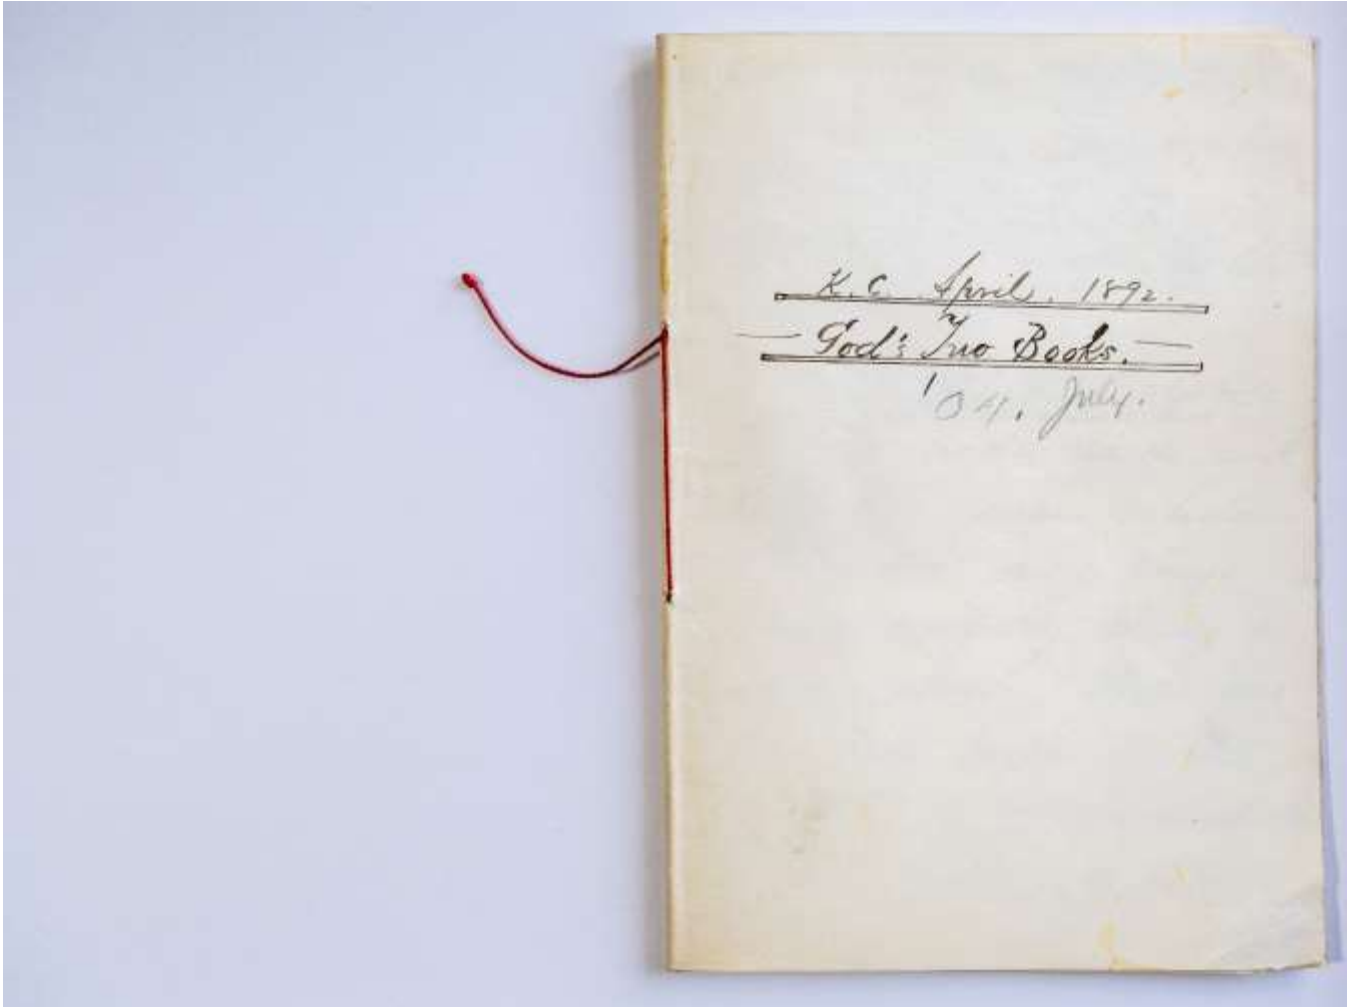 K. C. April. 1892.
— God's Two Books. —
'04. July.